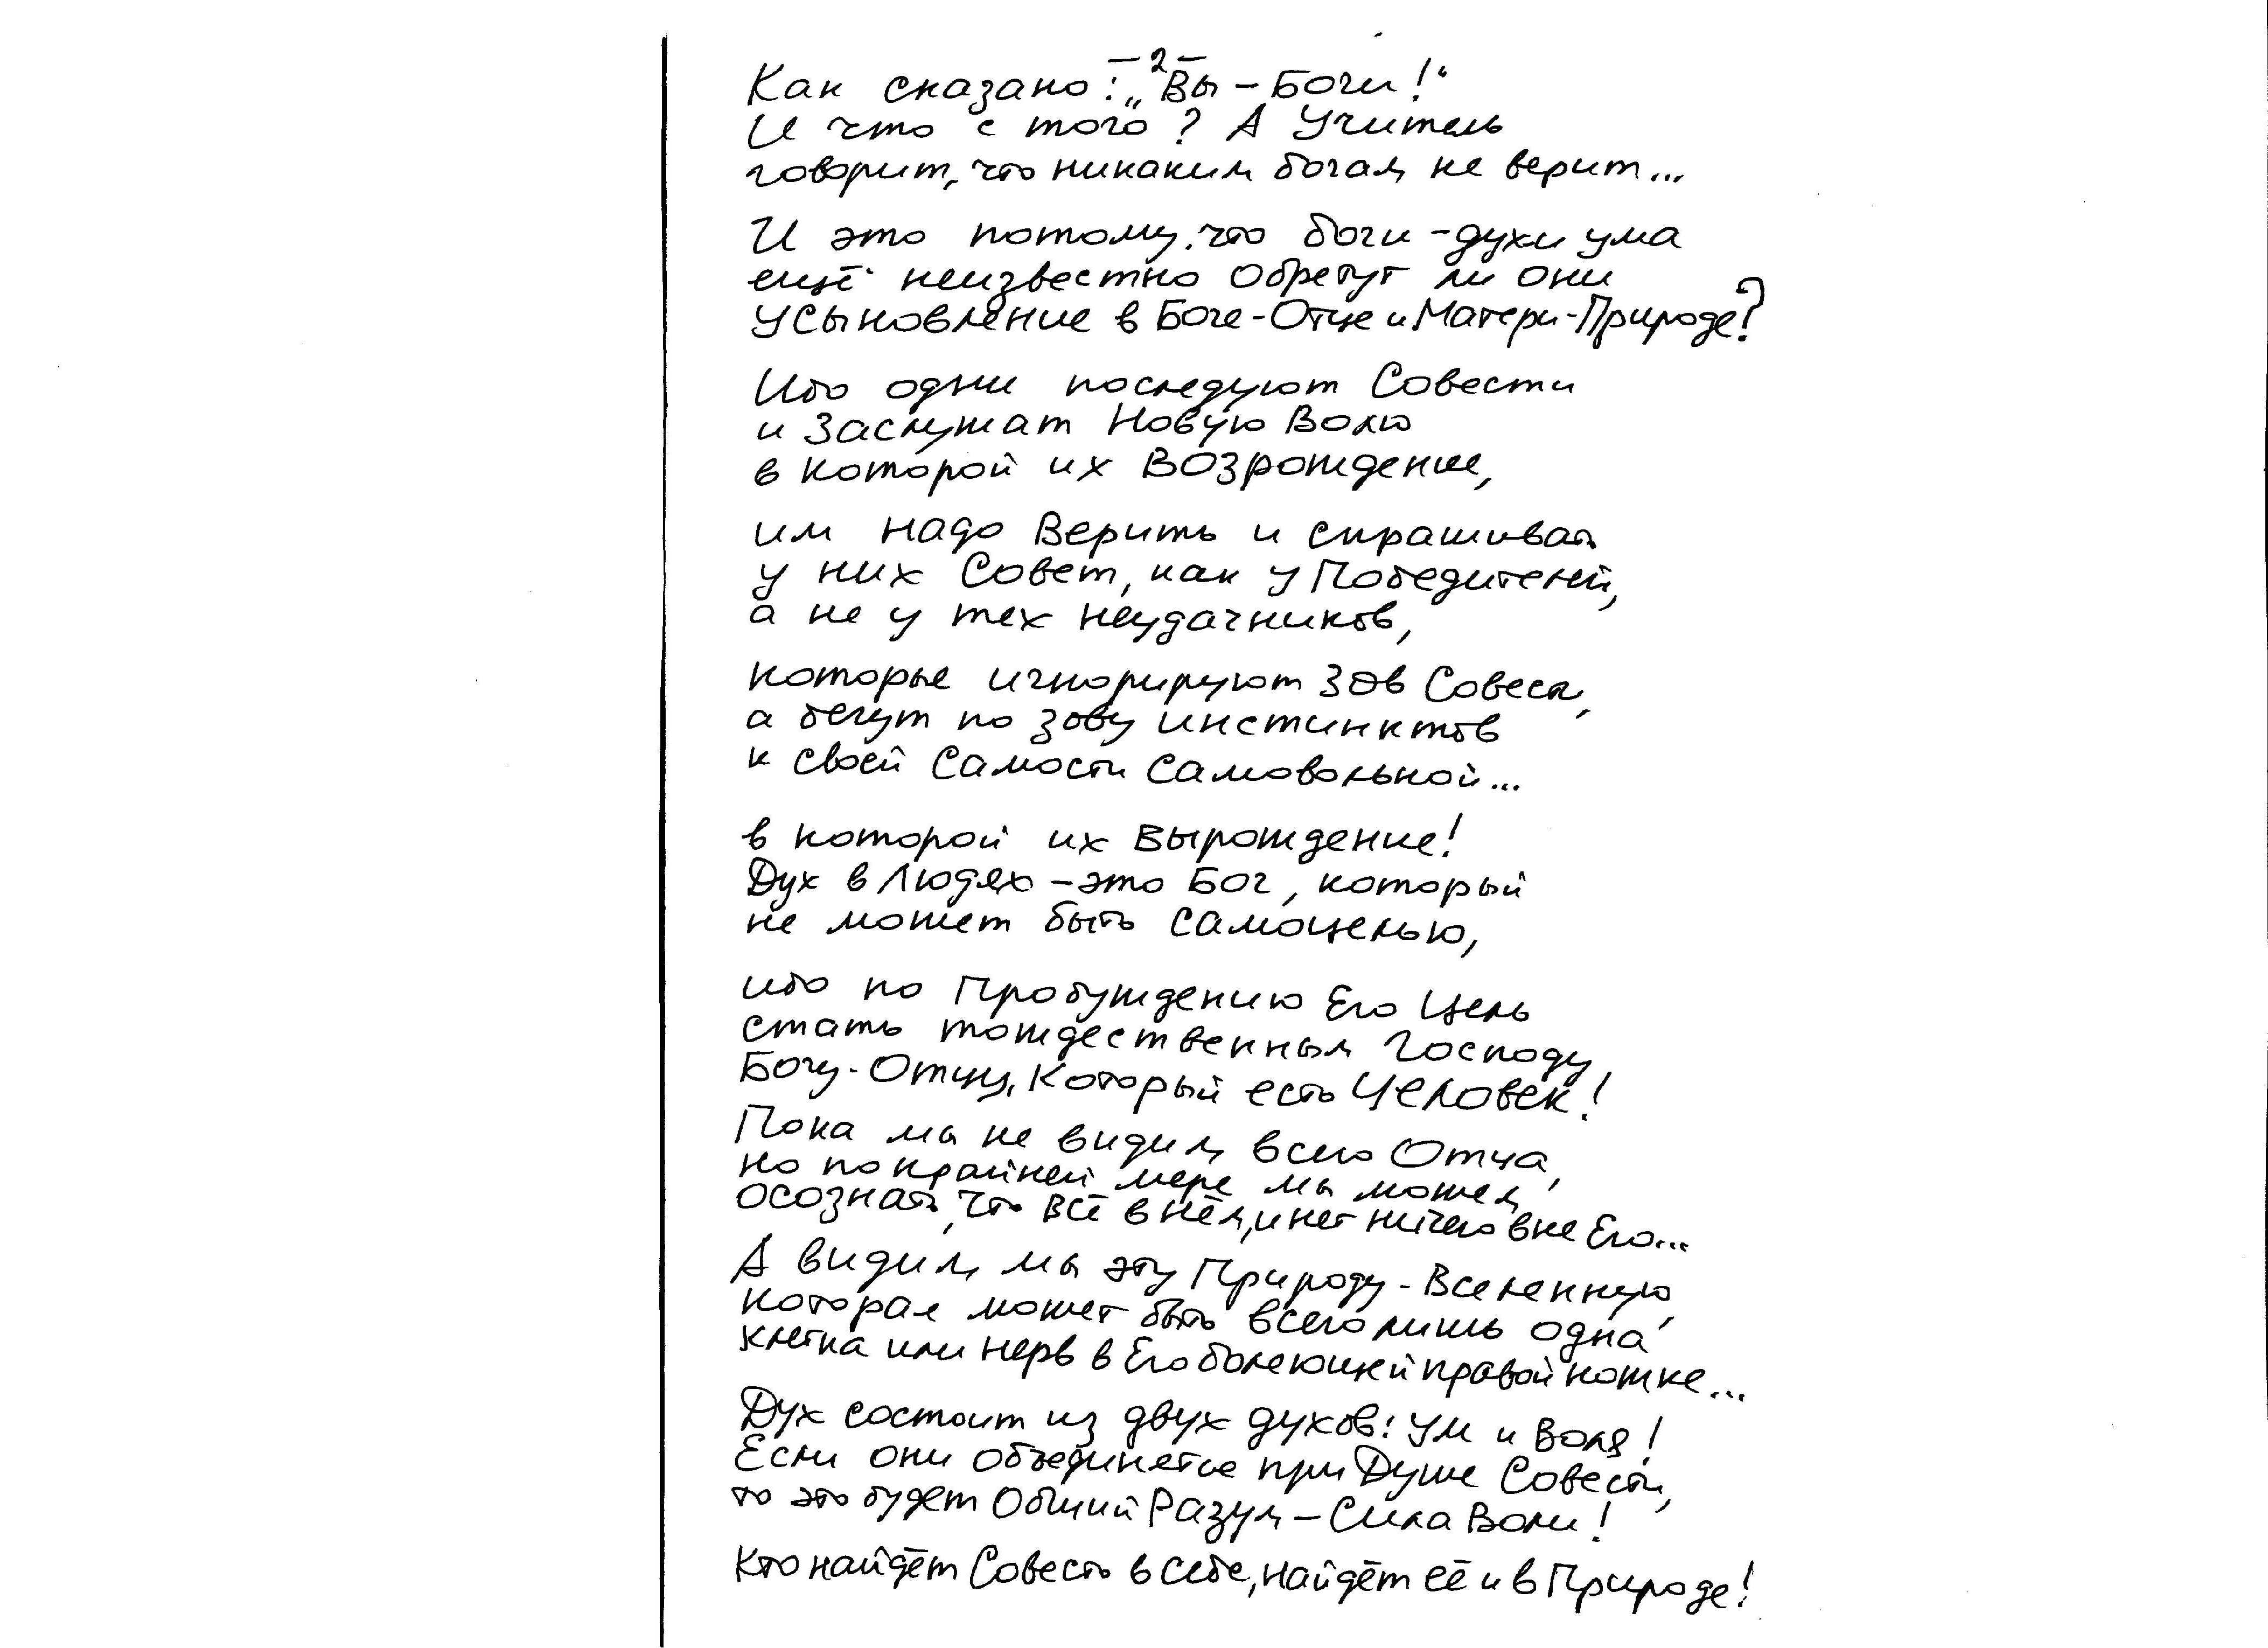 – 2 –
Как сказано: „Вы – Боги!"
И что с того? А Учитель
говорит, что никаким богам не верит...
И это потому, что боги – духи ума
ещё неизвестно обретут ли они
усыновление в Боге-Отце и Матери-Природе?
Ибо одни последуют Совести
и Заслужат Новую Волю
в которой их Возрождение,
им надо Верить и спрашивать
у них Совет, как у Победителей,
а не у тех неудачников,
которые игнорируют Зов Совести,
а бегут по зову инстинктов
к своей Самости Самовольной...
в которой их Вырождение!
Дух в Людях – это Бог, который
не может быть самоцелью,
ибо по Пробуждению Его Цель
стать тождественным Господу
Богу-Отцу, Который есть Человек!
Пока мы не видим всего Отца,
но по крайней мере мы можем
осознать, что всё в нём, и нет ничего вне Его...
А видим мы эту Природу-Вселенную,
которая может быть всего лишь одна
клетка или нерв в Его болеющей правой ножке...
Дух состоит из двух духов: Ум и Воля!
Если они объединятся при Душе Совести,
то это будет Общий Разум – Сила Воли!
Кто найдёт Совесть в себе, найдёт её и в Природе!